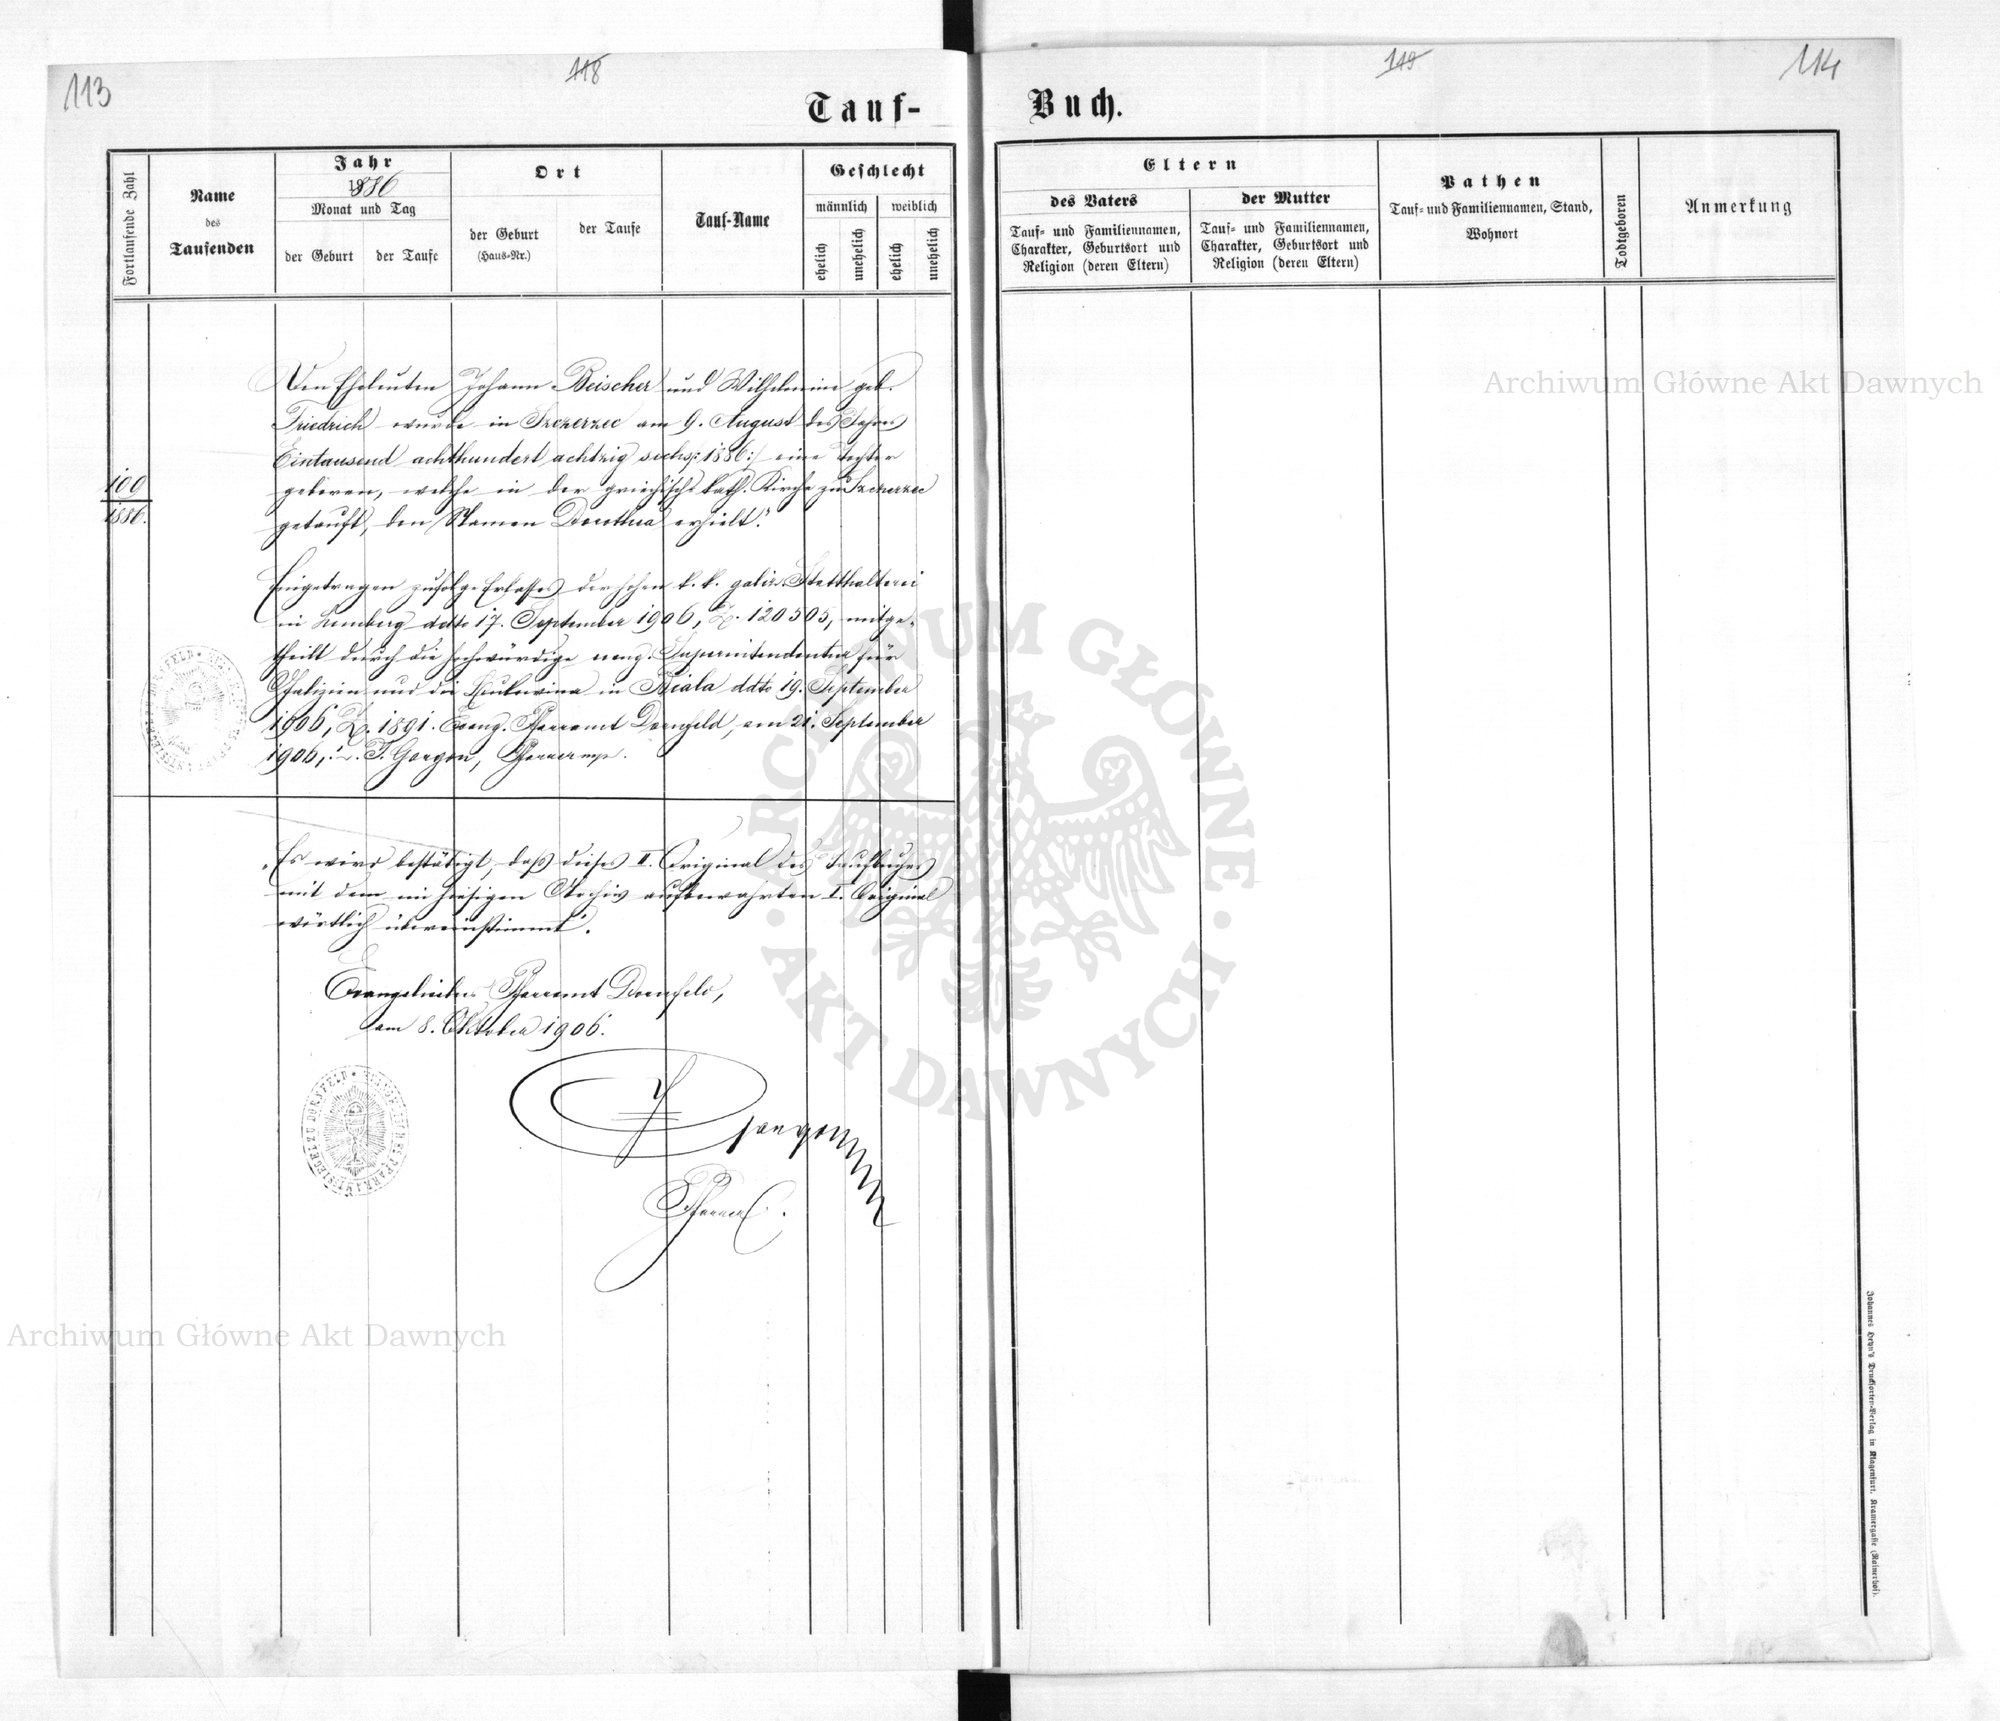 113
118
119
114
Tauf-
Buch.
Fortlaufende Zahl
Name
des
Taufenden
Jahr
1886
Monat und Tag
der Geburt
der Taufe
Ort
der Geburt
(Haus-Nr.)
der Taufe
Tauf-Name
Geschlecht
männlich
weiblich
ehelich
unehelich
ehelich
unehelich
Eltern
des Vaters
Tauf- und Familiennamen,
Charakter, Geburtsort und
Religion (deren Eltern)
der Mutter
Tauf- und Familiennamen,
Charakter, Geburtsort und
Religion (deren Eltern)
Pathen
Tauf- und Familiennamen, Stand,
Wohnort
Todtgeboren
Anmerkung
109
1886.
Den Eheleuten Johann Beischer und Wilhelmine geb.
Friedrich wurde in Szczerzec am 9. August des Jahres
Eintausend achthundert achtzig sechs /:1886:/ eine Tochter
geboren, welche in der griechisch kath. Kirche zu Szczerzec
getauft, den Namen Dorothea erhielt."
Eingetragen zufolge Erlasses der hohen k. k. galiz. Statthalterei
in Lemberg ddto 17. September 1906, Z. 120505, mitge-
theilt durch die hochwürdige evang. Superintendentur für
Galizien und die Bukowina in Biala ddto 19. September
1906, Z. 1891. Evang. Pfarramt Dornfeld, am 21. September
1906, J. Gorgon, Pfarrer mp.
"Es wird bestätigt, daß dieses II. Original des Taufbuches
mit dem im hiesigen Archiv aufbewahrten I. Original
wörtlich übereinstimmt".
Evangelisches Pfarramt Dornfeld,
am 8. Oktober 1906.
J Gorgon
Pfarrer
Johannes Heyn's Drucksorten-Verlag in Klagenfurt, Kramergasse (Rainerhof).
Archiwum Główne Akt Dawnych
Archiwum Główne Akt Dawnych
ARCHIWUM GŁÓWNE
AKT DAWNYCH